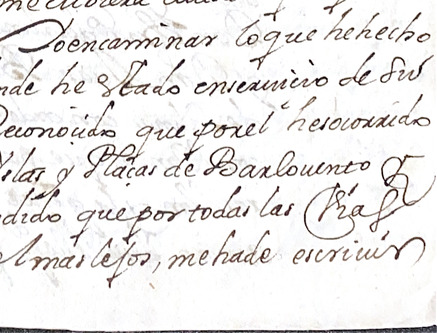 encaminar lo que he hecho
nde he estado en servicio de su
Reconocido que por el he socorrido
Islas y Plaças de Barlovento
dido que por todas las Vias
el mas lejos, me ha de escrivir